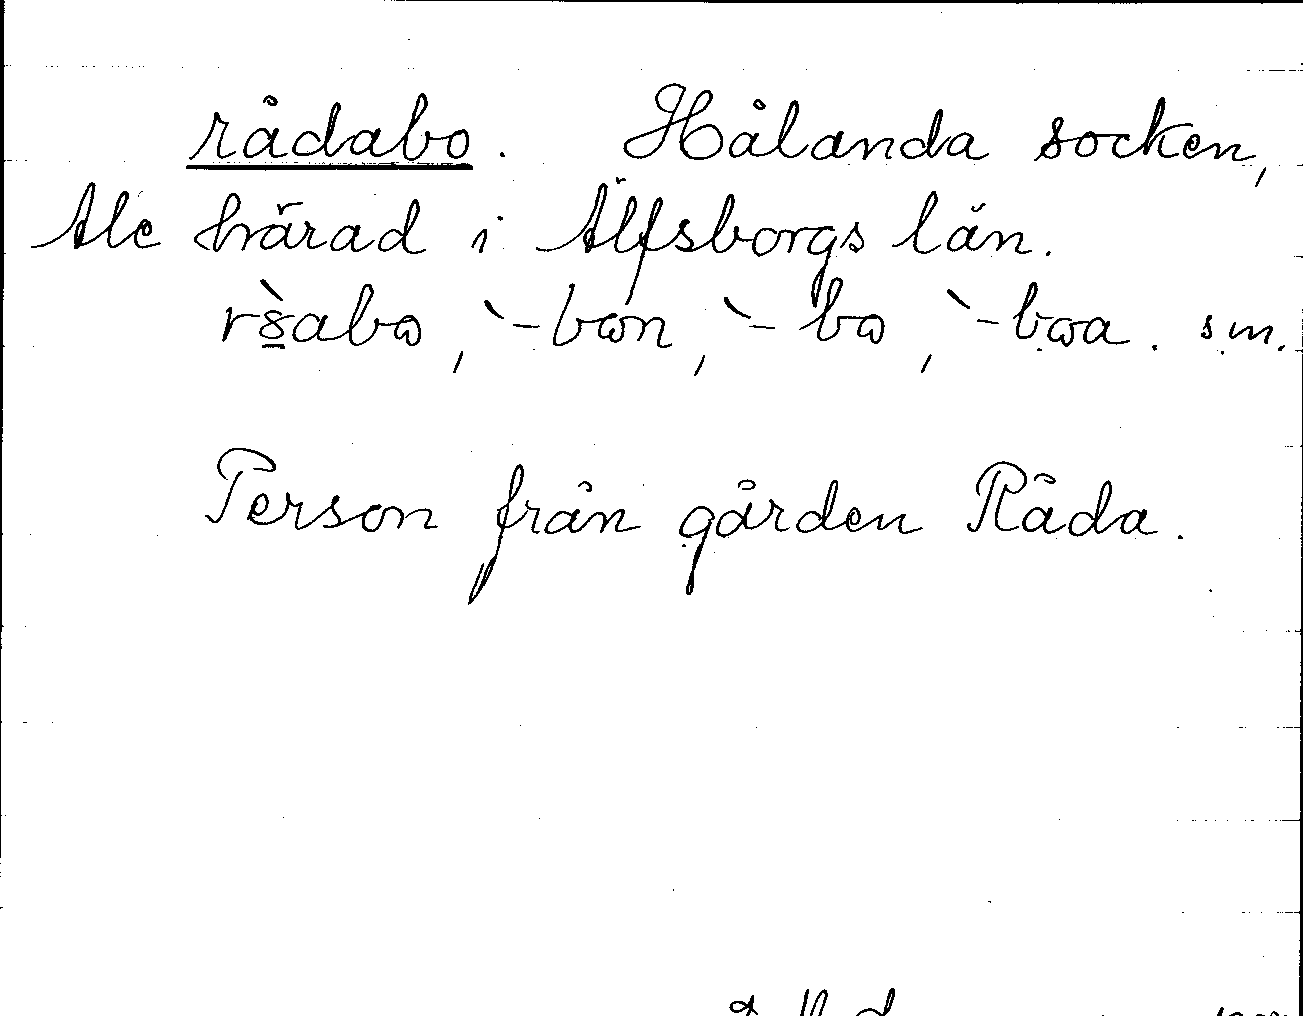 rådabo. Hålanda socken,
Ale härad i Älfsborgs län.
-bon, -bo, -boa. sm.
Person från gården Råda.